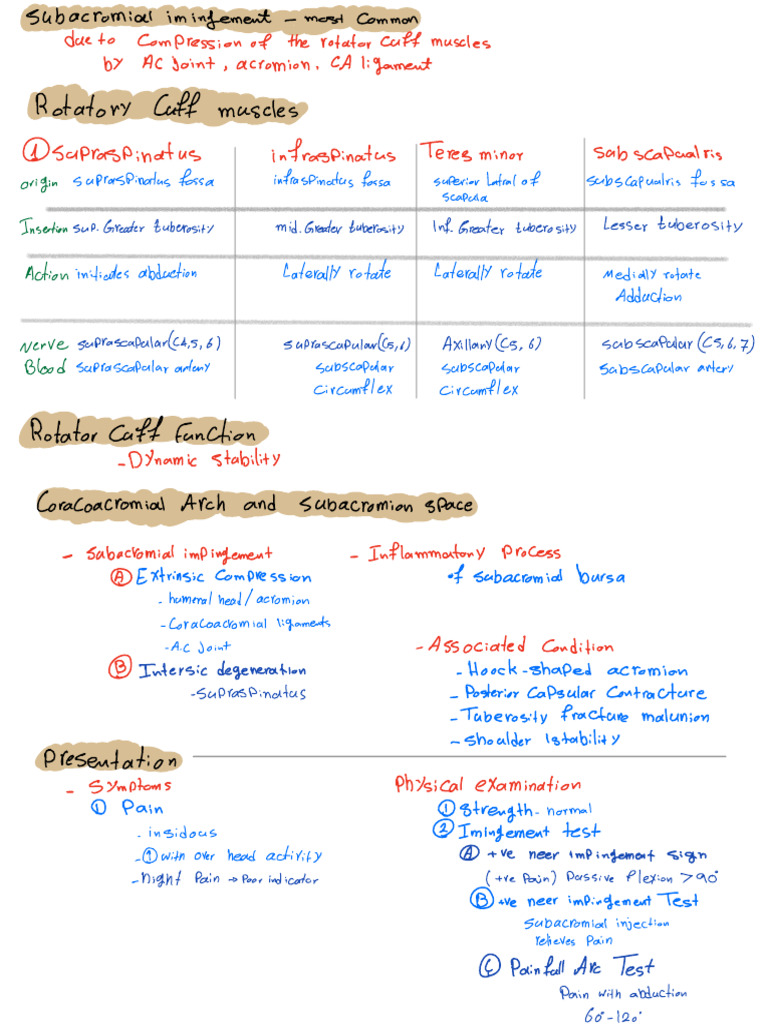 Subacromial imimfement – most Common
due to Compression of the rotator Cuff muscles
by AC Joint, acromion. CA ligament
Rotatory Cuff muscles
① Supraspinatus infraspinatus Teres minor Subscapualris
origin supraspinatus fossa infraspinatus fossa superior Latral of scapula subscapualris fossa
Insertion sup. Greater tuberosity mid. Greater tuberosity Inf. Greater tuberosity Lesser tuberosity
Action initicates abduction Laterally rotate Laterally rotate Medially rotate
Adduction
Nerve suprascapular (C4,5,6) suprascapular (C5,6) Axillary (C5,6) subscapular (C5,6,7)
Blood suprascapular artery subscapular subscapular subscapular artery
circumflex circumflex
Rotator Cuff Function
- Dynamic stability
Coracoacromial Arch and subacromion space
- Subacromial impingement
Ⓐ Extrinsic Compression
- humeral head / acromion
- Coracoacromial ligaments
- A.C Joint
Ⓑ Intersic degeneration
- supraspinatus
- Inflammatory Process
of subacromial bursa
- Associated Condition
- Hoock-shaped acromion
- Posterior Capsular Contracture
- Tuberosity fracture malunion
- shoulder Istability
Presentation
- Symptoms
① Pain
- insidous
- ↑ with over head activity
- night Pain → Poor indicator
Physical examination
① Strength - normal
② Imingement test
Ⓐ +ve neer impingement sign
(+ve Pain) Passive flexion > 90°
Ⓑ +ve neer impingement Test
Subacromial injection
relieves Pain
Ⓒ Painfull Arc Test
Pain with abduction
60°-120°